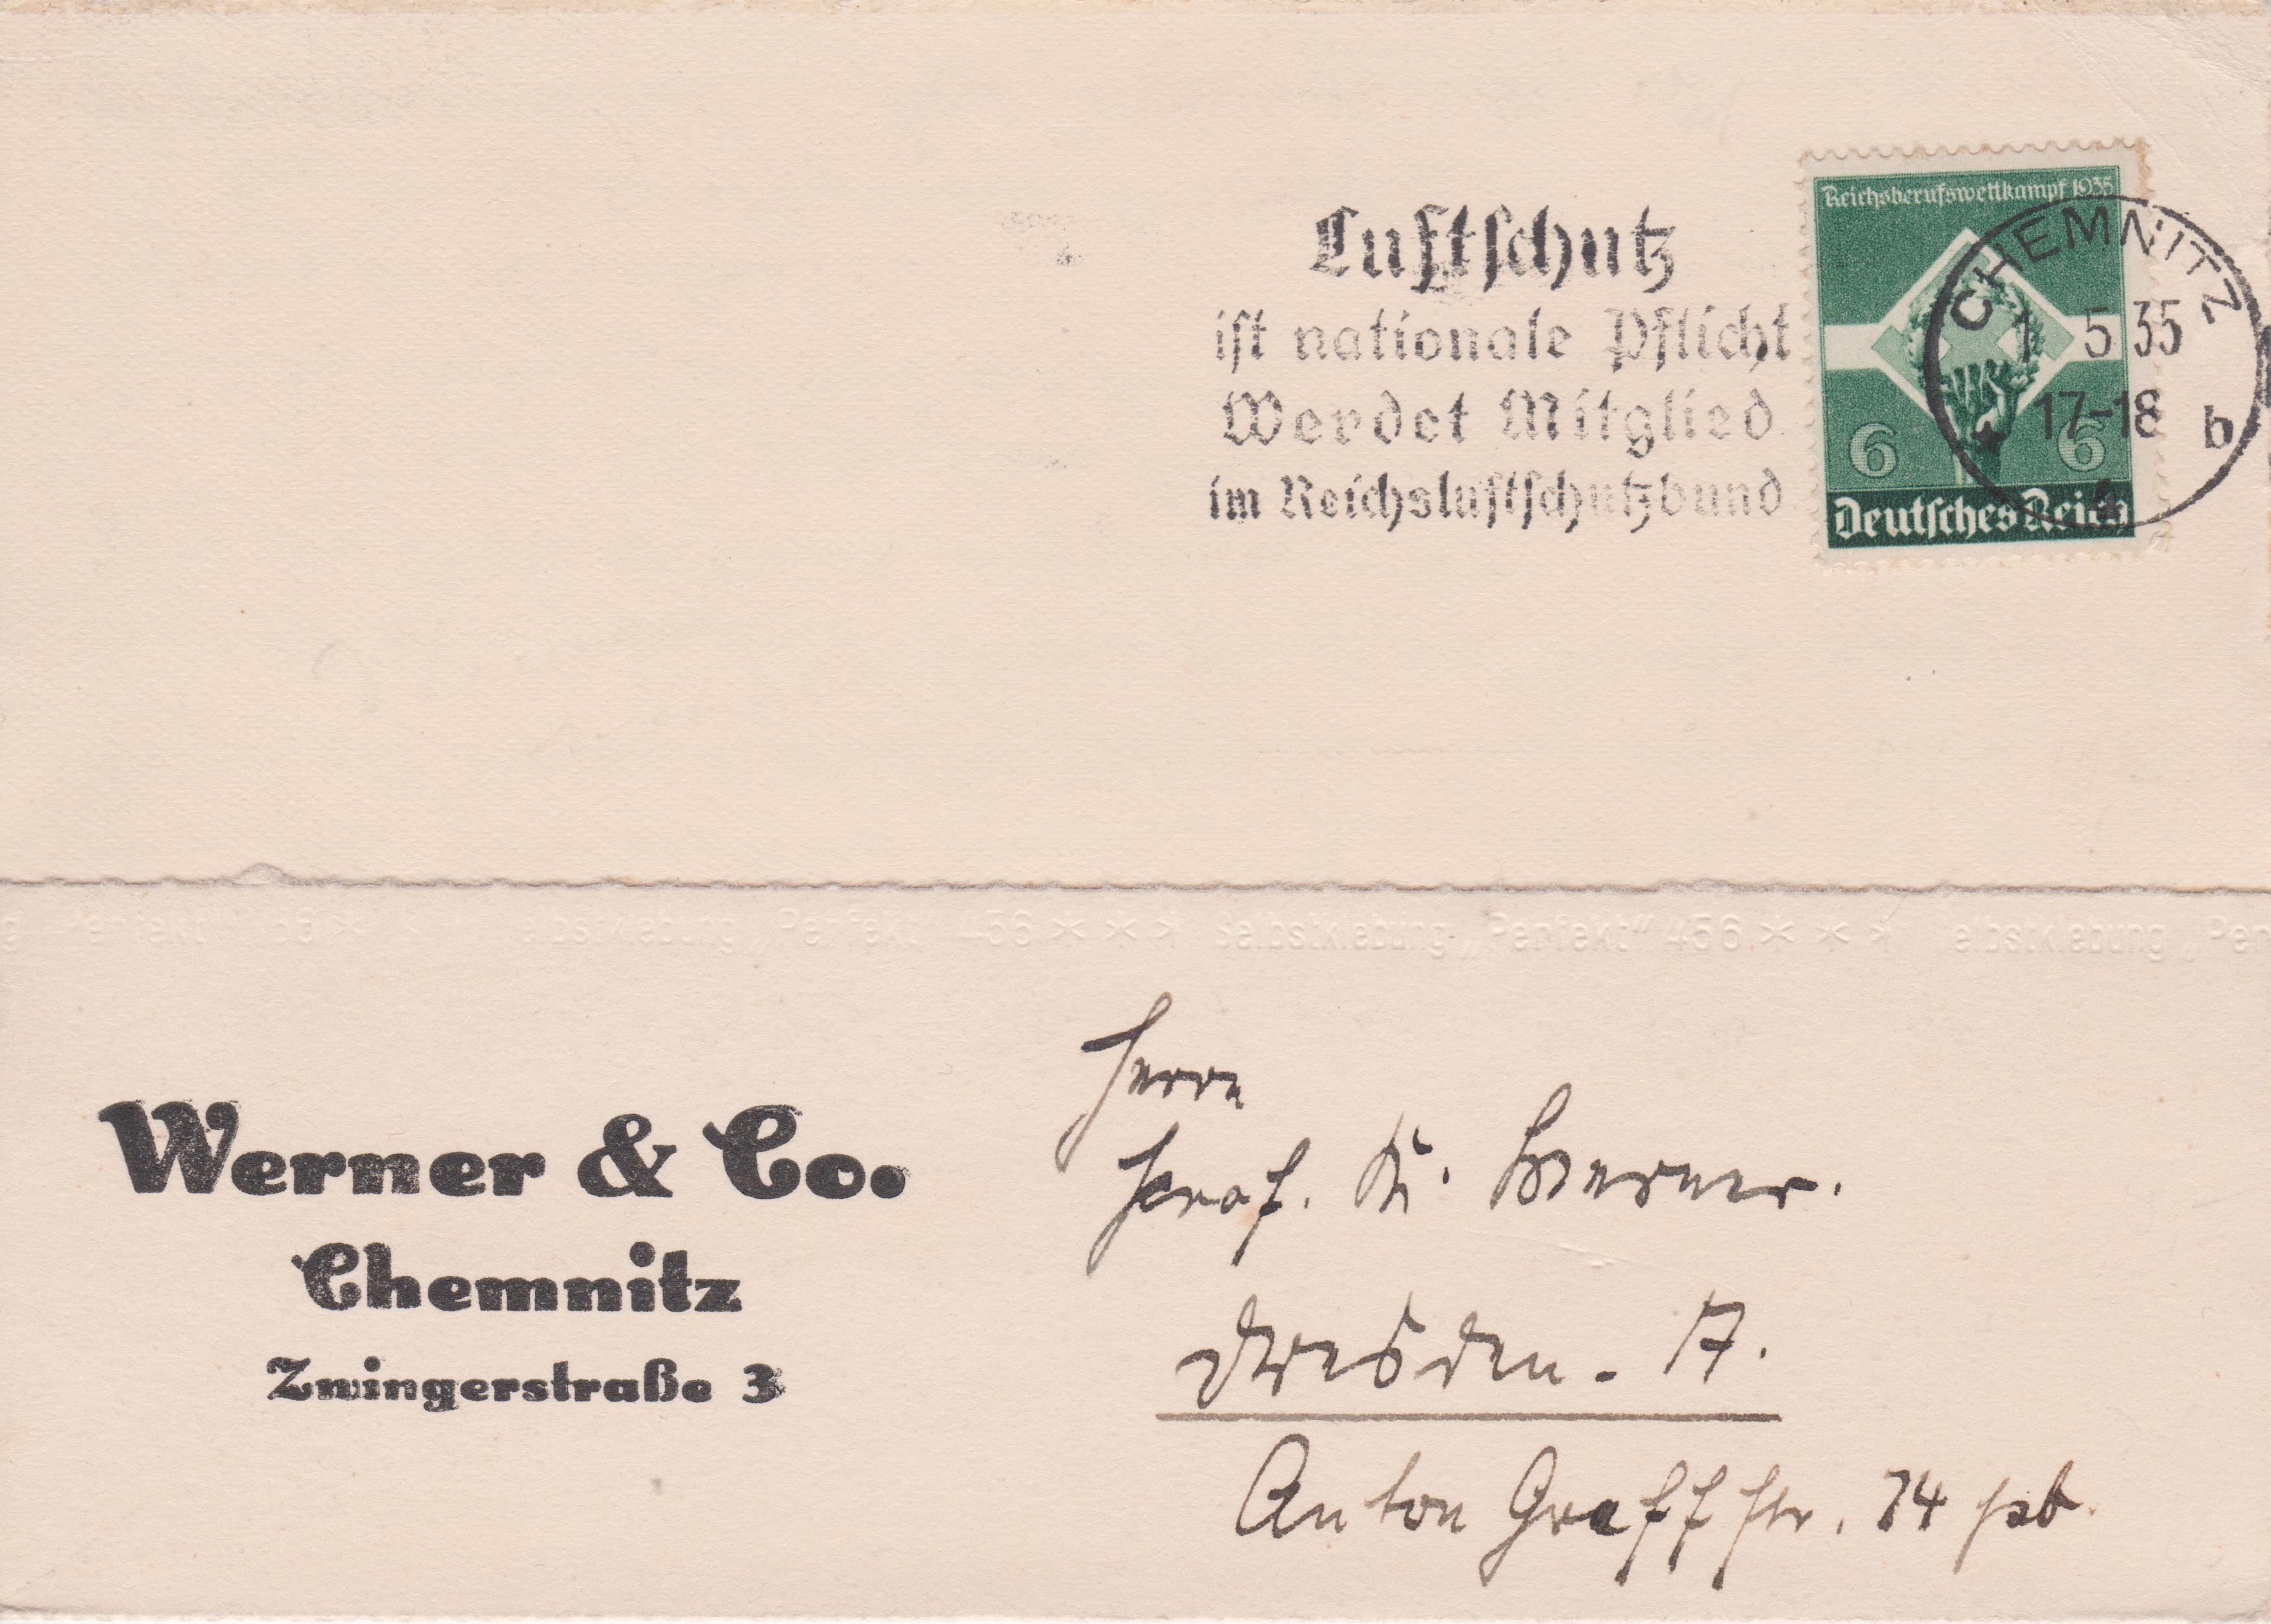 Reichsberufswettkampf 1935
6 6
Deutsches Reich
CHEMNITZ
1 5 35
17-18
b
4
Luftschutz
ist nationale Pflicht
Werdet Mitglied
im Reichsluftschutzbund
Selbstklebung „Perfekt“ 456 * * * Selbstklebung „Perfekt“ 456 * * * Selbstklebung
Werner & Co.
Chemnitz
Zwingerstraße 3
Herrn
Prof. K. Werner.
Dresden - A.
Anton Graff str. 14